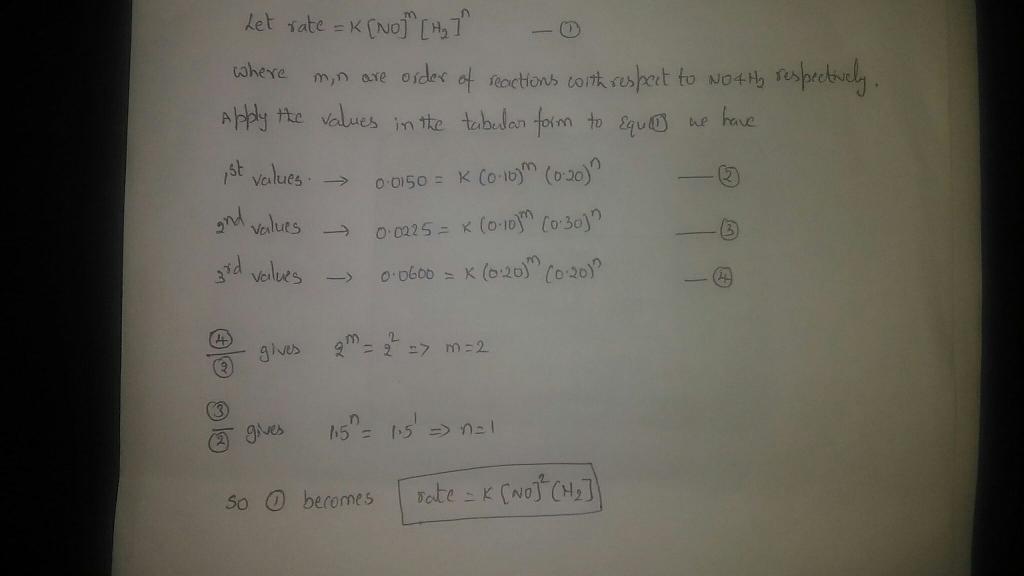 Let rate = K [NO]^m [H₂]^n — ①
where m,n are order of reactions with respect to NO & H₂ respectively.
Apply the values in the tabular form to Equ① we have
1st values. → 0.0150 = K (0.10)^m (0.20)^n — ②
2nd values → 0.0225 = K (0.10)^m (0.30)^n — ③
3rd values → 0.0600 = K (0.20)^m (0.20)^n — ④
④/② gives 2^m = 2^2 => m=2
③/② gives 1.5^n = 1.5^1 => n=1
So ① becomes rate = K [NO]^2 [H₂]